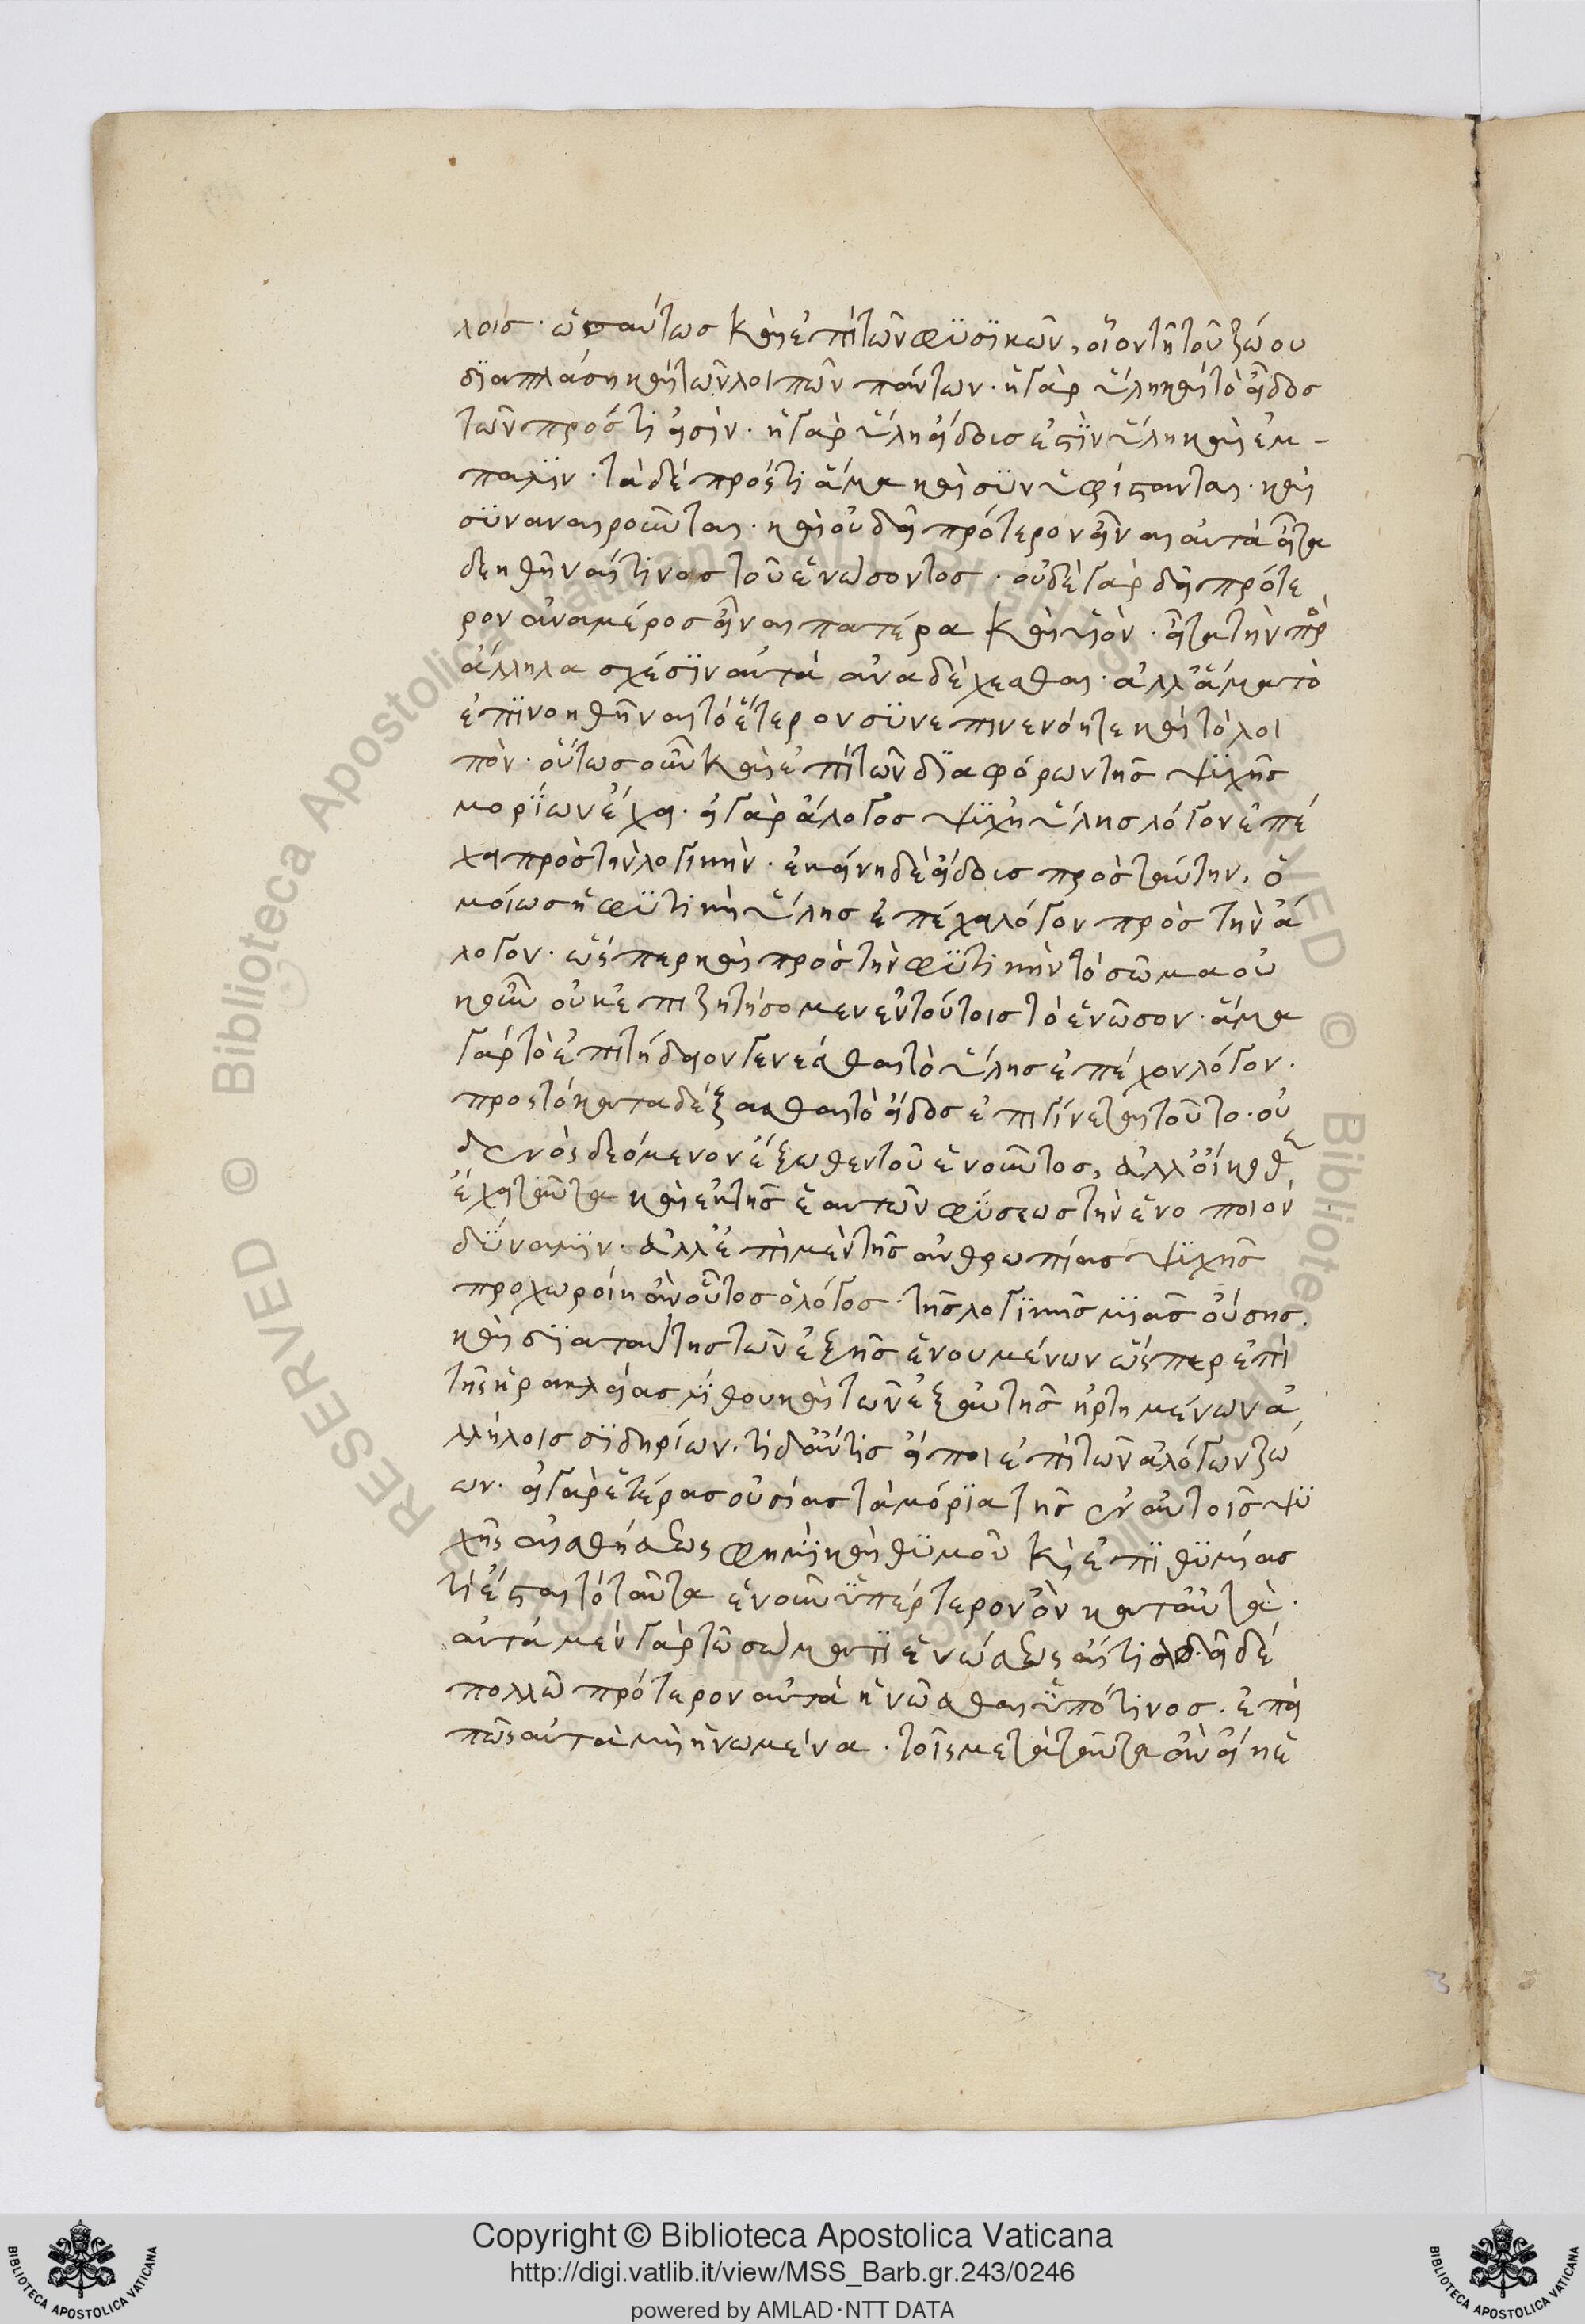 λοις· ὡσαύτως καὶ ἐπὶ τῶν φϋσϊκῶν, οἷον τῆ τοῦ ζώου
δϊαπλάσει καὶ τῶν λοιπῶν πάντων· ἡ γὰρ ὕλη καὶ τὸ εἶδος
τῶν πρός τι εἰσὶν· ἡ γὰρ ὕλη εἴδους ἐστϊν ὕλη καὶ ἔμ-
παλϊν· τὰ δὲ πρός τι ἅμα καὶ σϋνυφίσταται· καὶ
σϋναναιροῦνται· καὶ οὐ δεῖ πρότερον εἶναι αὐτὰ εἶτα
δεηθῆναί τινος τοῦ ἑνώσοντος· οὐδὲ γὰρ δεῖ πρότε
ρον ἀναμέρος εἶναι πατέρα καὶ υἱόν· εἶτα τὴν πρὸς
ἄλληλα σχέσϊν αὐτὰ ἀναδέχεσθαι· ἀλλ' ἅμα τὸ
ἐπϊνοηθῆναι τὸ ἕτερον σϋνεπινενόηται καὶ τὸ λοι
πόν· οὕτως οὖν καὶ ἐπὶ τῶν δϊαφόρων τῆς ψϋχῆς
μορϊων ἔχει· εἰ γὰρ ἄλογος ψϋχὴ ὕλης λόγον ἐπέ
χει πρὸς τὴν λογικήν· ἐκείνη δὲ εἴδους πρὸς ταύτην, ὁ
μοίως ἡ φϋτικὴ ὕλης ἐπέχει λόγον πρὸς τὴν ἄ
λογον· ὥσπερ καὶ πρὸς τὴν φϋτικὴν τὸ σῶμα οὐ
κοῦν οὐκ ἐπιζητήσομεν ἐν τούτοις τὸ ἑνῶσον· ἅμα
γὰρ τὸ ἐπιτήδειον γενέσθαι τὸ ὕλης ἐπέχον λόγον·
πρὸς τὸ καταδέξασθαι τὸ εἶδος ἐπιγίνεται τοῦτο· οὐ
δενὸς δεόμενον ἔξωθεν τοῦ ἑνοῦντος,
ἔχει ταῦτα καὶ ἐκ τῆς ἑαυτῶν φϋσεως τὴν ἑνοποιὸν
δϋναμϊν· ἀλλ' ἐπὶ μὲν τῆς ἀνθρωπίας ψϋχῆς
προχωροίη ἂν οὗτος ὁ λόγος· τῆς λογϊκῆς μϊᾶς οὔσης·
καὶ δϊὰ ταύτης τῶν ἑξῆς ἑνουμένων ὥσπερ ἐπὶ
τῆς ἡρακλείας λϊθου καὶ τῶν ἐξ αὐτῆς ἠρτημένων ἀ
λλήλοις σϊδηρίων· τί δ' ἄν τις εἴποι ἐπὶ τῶν ἀλόγων ζώ
ων· εἰ γὰρ ἑτέρας οὐσίας τὰ μόρϊα τῆς ἐν αὐτοῖς ψϋ
χῆς αἰσθήσεως φημὶ καὶ θϋμοῦ καὶ ἐπϊθϋμίας
τί ἔσται τὸ ταῦτα ἑνοῦν ὑπέρτερον ὂν κατ' αὐτά·
αὐτὰ μὲν γὰρ τῶ σώματϊ ἑνώσεως αἴτια· δεῖ δὲ
πολλῶ πρότερον αὐτὰ ἡνῶσθαι ὑπό τινος· ἐπεὶ
πῶς αὐτὰ μὴ ἡνωμένα· τοῖς μετὰ ταῦτα ἂν εἴη ἑ